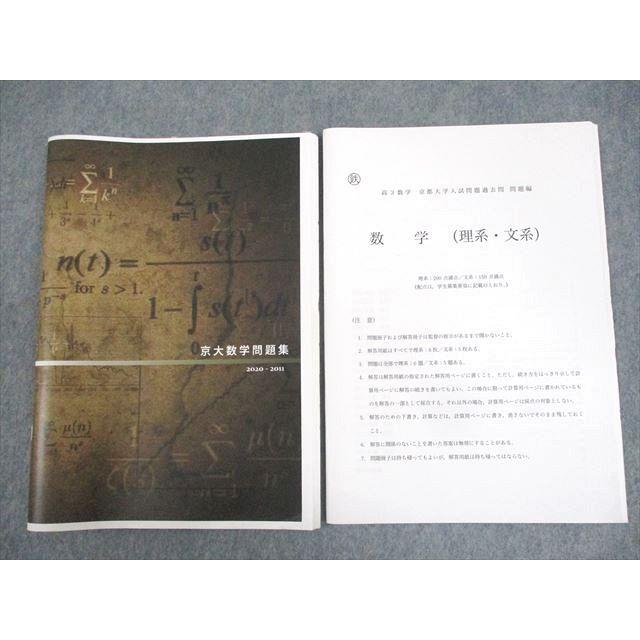 京大数学問題集
2020 - 2011
n(t) =
for s > 1.
s(t)
1-∫s(t)dt
n=1
k=1
鉄
高3数学 京都大学入試問題過去問 問題編
数 学 (理系・文系)
理系:200 点満点/文系:150 点満点
(配点は、学生募集要項に記載のとおり。)
(注 意)
1. 問題冊子および解答冊子は監督の指示があるまで開かないこと。
2. 解答用紙はすべてで理系:6枚/文系:5枚ある。
3. 問題は全部で理系:6題/文系:5題ある。
4. 解答は解答用紙の指定された解答ページに書くこと。ただし、続き方をはっきり示して計
算用ページに解答の続きを書いてもよい。この場合に限って計算用ページに書かれているも
のを解答の一部として採点する。それ以外の場合、計算用ページは採点の対象としない。
5. 解答のための下書き、計算などは、計算用ページに書き、消さないでそのまま残しておく
こと。
6. 解答に関係のないことを書いた答案は無効にすることがある。
7. 問題冊子は持ち帰ってもよいが、解答用紙は持ち帰ってはならない。